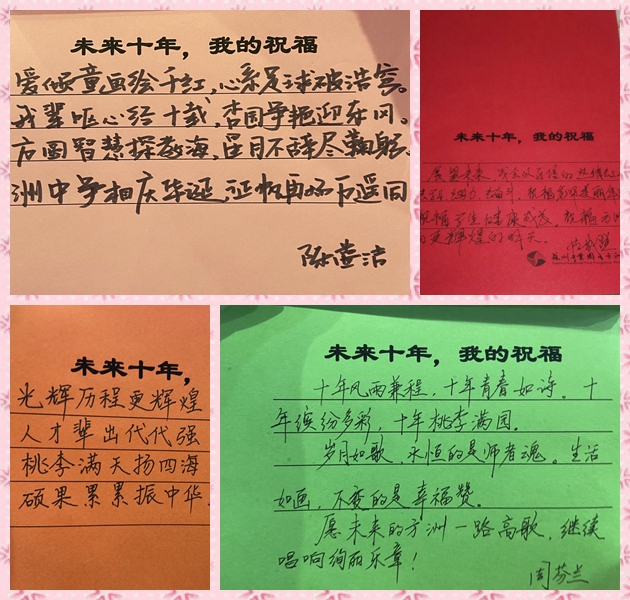 未来十年，我的祝福
爱倾童画绘千红，心系足球破浩穹。
我辈呕心经十载，杏园争艳迎东风。
方圆智慧探教海，星月不辞尽鞠躬。
洲中争相庆华诞，征帆再扬万里同
陈莹洁
未来十年，我的祝福
展望未来，我会以百倍的热情
校园学生健康成长，祝福方洲
更辉煌的明天。
未来十年，
光辉历程更辉煌
人才辈出代代强
桃李满天扬四海
硕果累累振中华.
未来十年，我的祝福
十年风雨兼程，十年青春如诗。十
年缤纷多彩，十年桃李满园。
岁月如歌，永恒的是师者魂。生活
如画，不变的是幸福赞。
愿未来的方洲一路高歌，继续
唱响绚丽乐章！
周芬兰